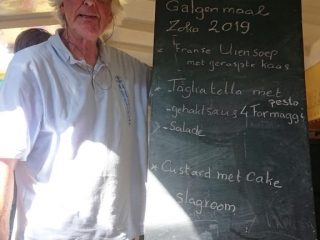 Galgenmaal
Zoko 2019
* Franse Uiensoep
met geraspte kaas
* Tagliatella met
pesto
-gehaktsaus 4 Formaggi
- Salade
* Custard met Cake
slagroom